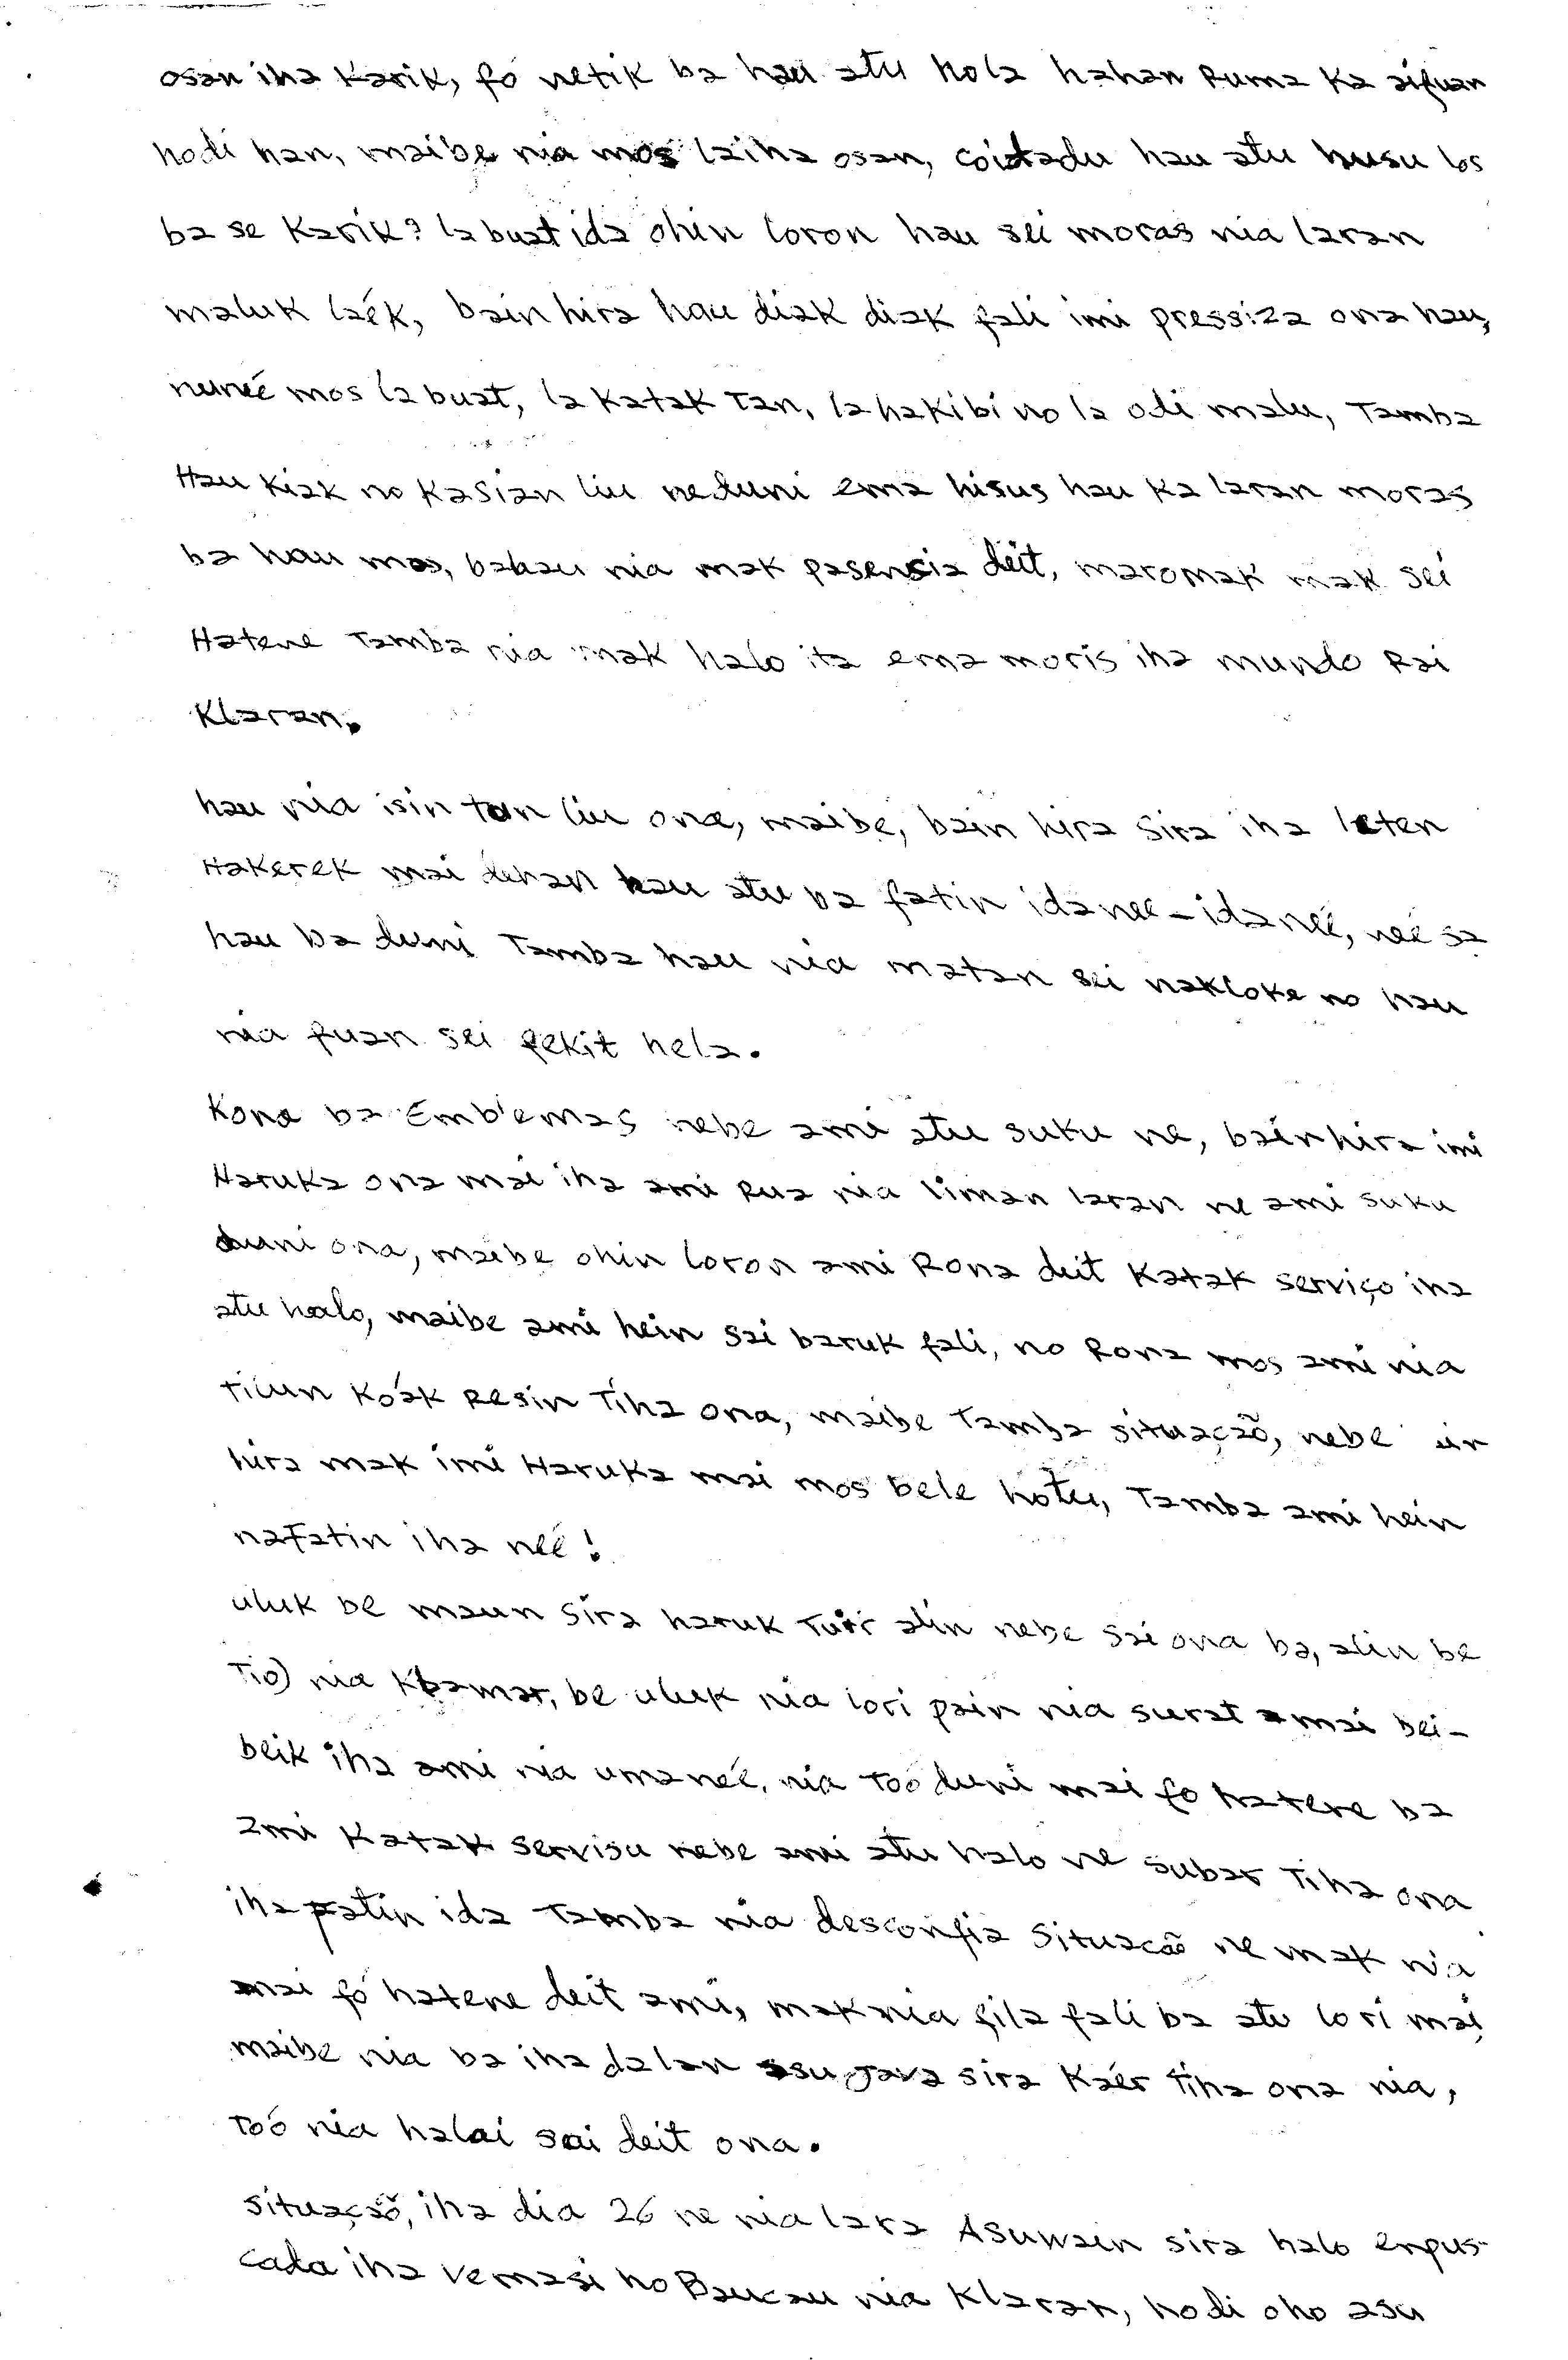 osan iha karik, fó netik ba hau atu hola hahan ruma ka aifuan
hodi han, maibe nia mos laiha osan, coitadu hau atu husu los
ba se karik? la buat ida ohin loron hau sei moras nia laran
maluk laék, bain hira hau diak diak fali imi pressiza ona hau,
nuneé mos la buat, la katak tan, la hakibi no la odi malu, Tamba
Hau kiak no kasian liu neduni ema hisus hau ka laran moras
ba hau mos, bahau nia mak pasensia deit, maromak mak sei
Hatene Tamba nia mak halo ita ema moris iha mundo Rai
Klaran.
hau nia isin tun liu ona, maibe, bain hira sira iha leten
Hakerek mai dehan hau atu ba fatin idaneé-idaneé, neé sa
hau ba duni Tamba hau nia matan sei nakloke no hau
nia fuan sei fekit hela.
Kona ba Emblemas nebe ami atu suku ne, bainhira imi
Haruka ona mai iha ami Rua nia liman laran ne ami suku
duni ona, maibe ohin loron ami Rona deit Katak serviço iha
atu halo, maibe ami hein sai baruk fali, no Rona mos ami nia
tilun koák Resin Tiha ona, maibe Tamba situaçaõ, nebe
hira mak imi Haruka mai mos bele hotu, Tamba ami hein
nafatin iha neé!
uluk be maun sira haruk Tuir alin nebe sai ona ba, alin be
Tio) nia Kbamar, be uluk nia lori pain nia surat mai bei-
beik iha ami nia umaneé, nia Toó duni mai fo hatene ba
ami Katak servisu nebe ami atu halo ne subar Tiha ona
iha fatin ida Tamba nia desconfia situacaõ ne mak nia
mai fó hatene deit ami, mak nia fila fali ba atu lori mai,
maibe nia ba iha dalan asu Java sira Kaér tiha ona nia,
Toó nia halai sai deit ona.
situaçaõ, iha dia 26 ne nia lara Asuwain sira halo enpus-
cada iha Vemasi ho Baucau nia Klaran, hodi oho asu